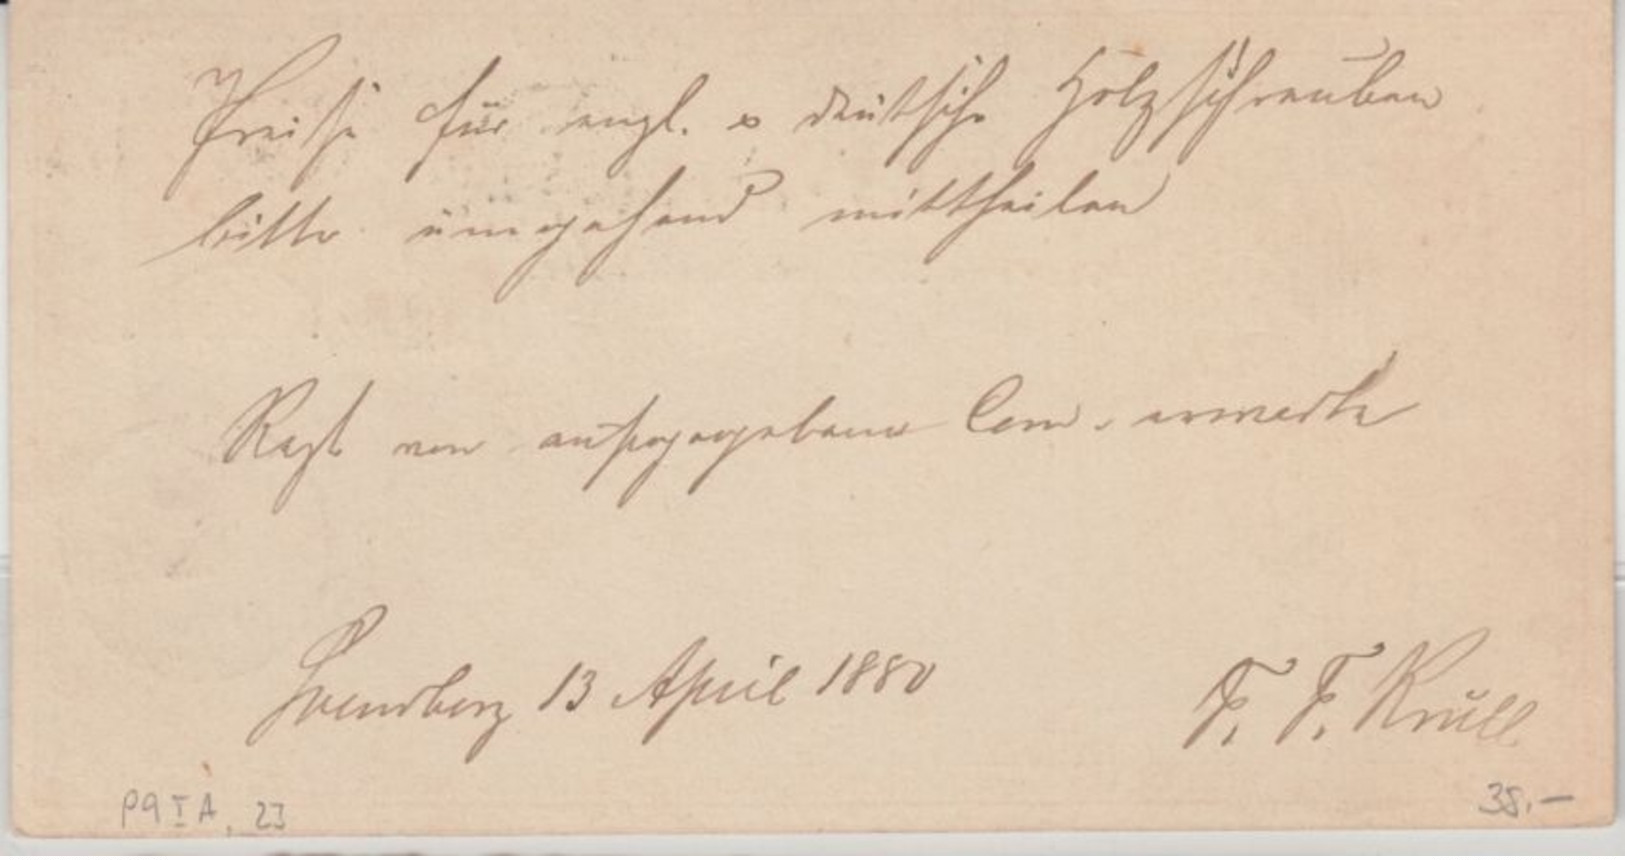 Preise für engl. & deutsche Holzschrauben
bitte umgehend mittheilen
Rest von aufgegebene Com. erwarte
13 April 1880
F. F. Krull
P9 I A, 23
38.–